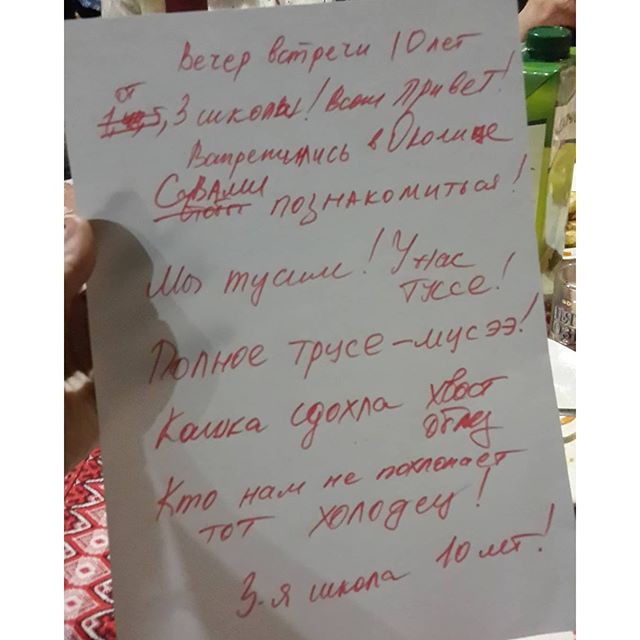 Вечер встречи 10 лет
от
3 школы! Всем привет!
Встретились в Околице
С Вами познакомиться!
Мы тусим! У нас
тусе!
Полное трусе-мусээ!
Кошка сдохла хвост
облез
Кто нам не похлопает
тот холодец!
3-я школа 10 лет!